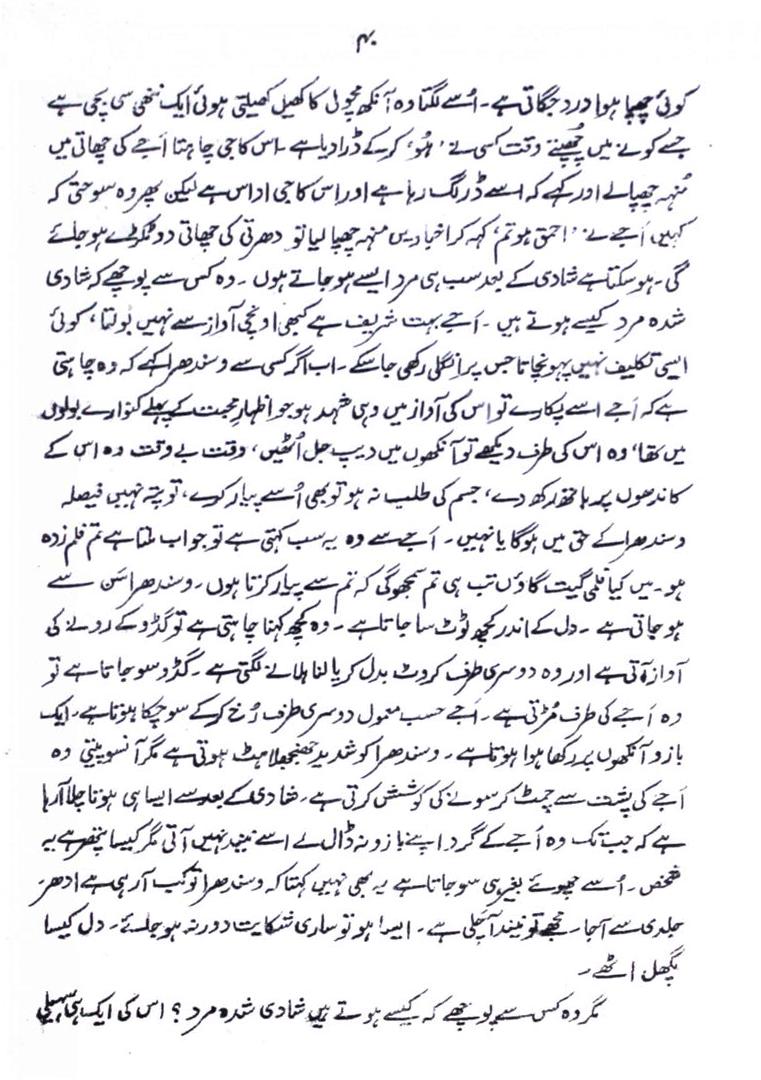 ۴۰
کوئی چھپا ہوا درد جگاتی ہے۔ اُسے لگتا وہ آنکھ مچولی کا کھیل کھیلتی ہوئی ایک ننھی سی بچی ہے
جسے کونے میں چھُپتے وقت کسی نے 'ہُو' کر کے ڈرا دیا ہے۔ اس کا جی چاہتا اَجے کی چھاتی میں
مُنہہ چھپا لے اور کہے کہ اسے ڈر لگ رہا ہے اور اس کا جی اداس ہے لیکن پھر وہ سوچتی کہ
کہیں اَجے نے 'احمق ہو تم' کہہ کر اخبار میں منہہ چھپا لیا تو دھرتی کی چھاتی دو ٹکڑے ہو جائے
گی۔ ہو سکتا ہے شادی کے بعد سب ہی مرد ایسے ہو جاتے ہوں۔ وہ کس سے پوچھے کہ شادی
شدہ مرد کیسے ہوتے ہیں۔ اَجے بہت شریف ہے کبھی اونچی آواز سے نہیں بولتا، کوئی
ایسی تکلیف نہیں پہونچاتا جس پر انگلی رکھی جا سکے۔ اب اگر کسی سے وسندھرا کہے کہ وہ چاہتی
ہے کہ اَجے اسے پکارے تو اس کی آواز میں وہی شہد ہو جو اظہارِ محبت کے پہلے کنوارے بولوں
میں تھا، وہ اس کی طرف دیکھے تو آنکھوں میں دیپ جل اُٹھیں، وقت بے وقت وہ اس کے
کاندھوں پر ہاتھ رکھ دے، جسم کی طلب نہ ہو تو بھی اُسے پیار کرے، تو پتہ نہیں فیصلہ
وسندھرا کے حق میں ہوگا یا نہیں۔ اَجے سے وہ یہ سب کہتی ہے تو جواب ملتا ہے تم فلم زدہ
ہو۔ میں کیا فلمی گیت گاؤں تب ہی تم سمجھو گی کہ تم سے پیار کرتا ہوں۔ وسندھرا سَن سے
ہو جاتی ہے۔ دل کے اندر کچھ ٹوٹ سا جاتا ہے۔ وہ کچھ کہنا چاہتی ہے تو گڈو کے رونے کی
آواز آتی ہے اور وہ دوسری طرف کروٹ بدل کر پالنا ہلانے لگتی ہے۔ گڈو سو جاتا ہے تو
وہ اَجے کی طرف مُڑتی ہے۔ اَجے حسب معمول دوسری طرف رُخ کر کے سو چکا ہوتا ہے۔ ایک
بازو آنکھوں پر رکھا ہوا ہوتا ہے۔ وسندھرا کو شدید جھنجھلاہٹ ہوتی ہے مگر آنسو پیتی وہ
اَجے کی پشت سے چمٹ کر سونے کی کوشش کرتی ہے۔ شادی کے بعد سے ایسا ہی ہوتا چلا آ رہا
ہے کہ جب تک وہ اَجے کے گرد اپنے بازو نہ ڈال لے اسے نیند نہیں آتی مگر کیسا پتھر ہے یہ
شخص۔ اُسے چھوئے بغیر ہی سو جاتا ہے یہ بھی نہیں کہتا کہ وسندھرا تو کب آ رہی ہے ادھر
جلدی سے آ جا۔ مجھے تو نیند آ چلی ہے۔ ایسا ہو تو ساری شکایت دور نہ ہو جائے۔ دل کیسا
پگھل اٹھے۔
مگر وہ کس سے پوچھے کہ کیسے ہوتے ہیں شادی شدہ مرد؟ اس کی ایک ہی سہیلی